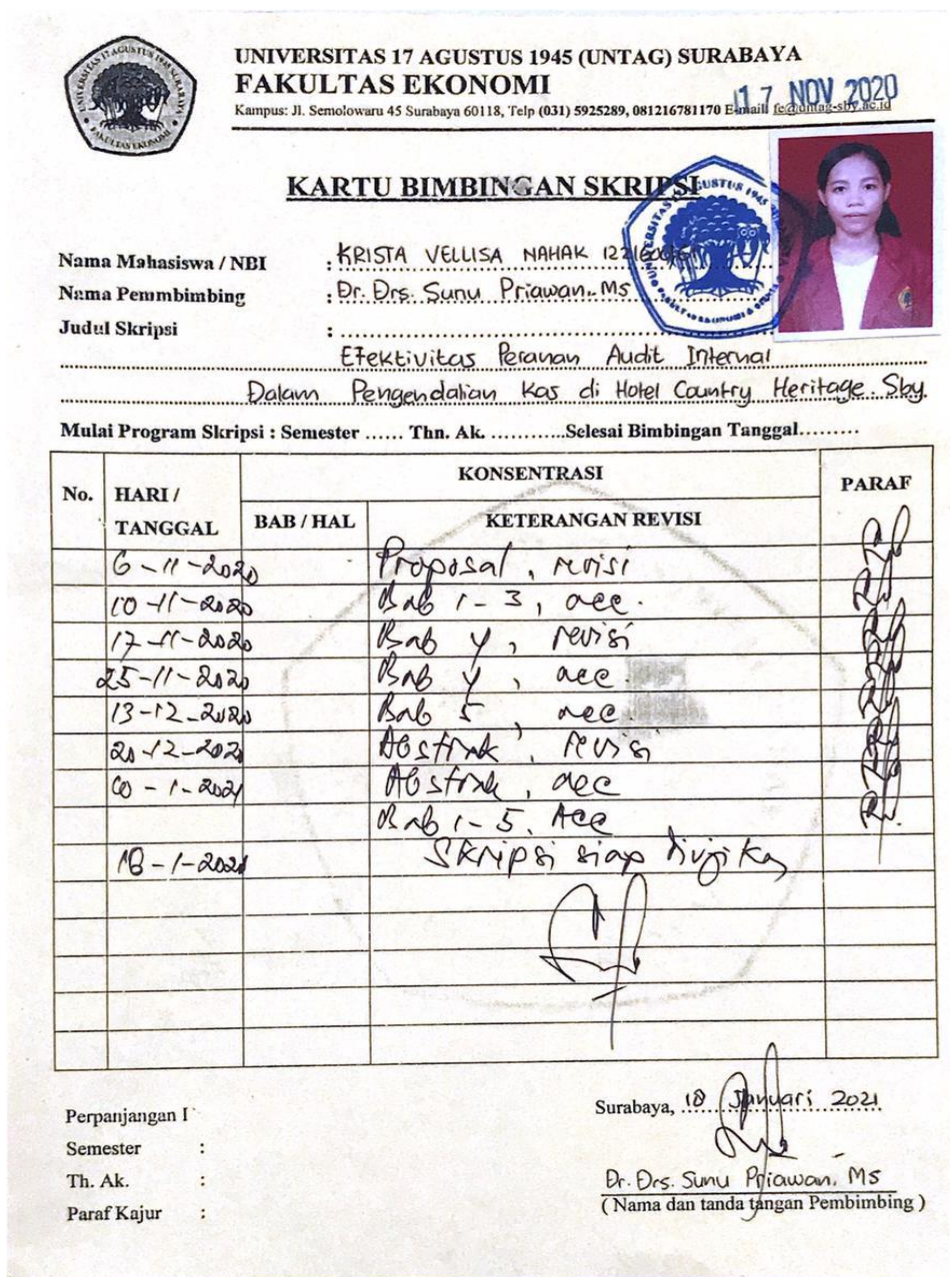 UNIVERSITAS 17 AGUSTUS 1945 SURABAYA
FAKULTAS EKONOMI
UNIVERSITAS 17 AGUSTUS 1945 (UNTAG) SURABAYA
FAKULTAS EKONOMI
Kampus: Jl. Semolowaru 45 Surabaya 60118, Telp (031) 5925289, 081216781170 E-maill fe@untag-sby.ac.id
17 NOV 2020
KARTU BIMBINGAN SKRIPSI
Nama Mahasiswa / NBI : KRISTA VELLISA NAHAK
Nama Pemmbimbing : Dr. Drs. Sunu Priawan. MS
Judul Skripsi :
Efektivitas Peranan Audit Internal
Dalam Pengendalian Kas di Hotel Country Heritage Sby.
Mulai Program Skripsi : Semester ...... Thn. Ak. ............Selesai Bimbingan Tanggal.........
No. HARI / TANGGAL KONSENTRASI PARAF
BAB / HAL KETERANGAN REVISI
6-11-2020 Proposal, revisi
10-11-2020 Bab 1-3, acc.
17-11-2020 Bab 4, revisi
25-11-2020 Bab 4, acc.
13-12-2020 Bab 5, acc.
20-12-2020 Abstrak, revisi
-1-2021 Abstrak, acc
Bab 1-5. Acc
18-1-2021 Skripsi siap diujikan
Perpanjangan I
Semester :
Th. Ak. :
Paraf Kajur :
Surabaya, 18 Januari 2021
Dr. Drs. Sunu Priawan. MS
( Nama dan tanda tangan Pembimbing )